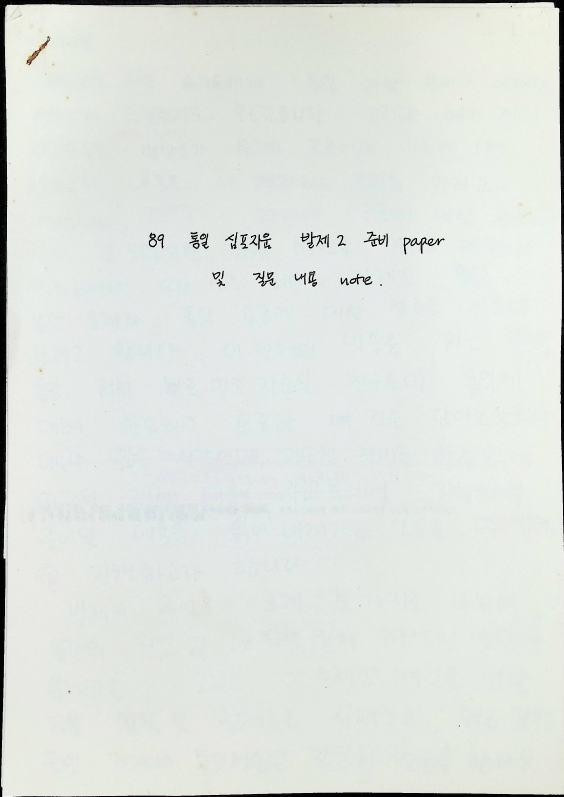 89 통일 심포지움 발제 2 준비 paper
및 질문 내용 note.